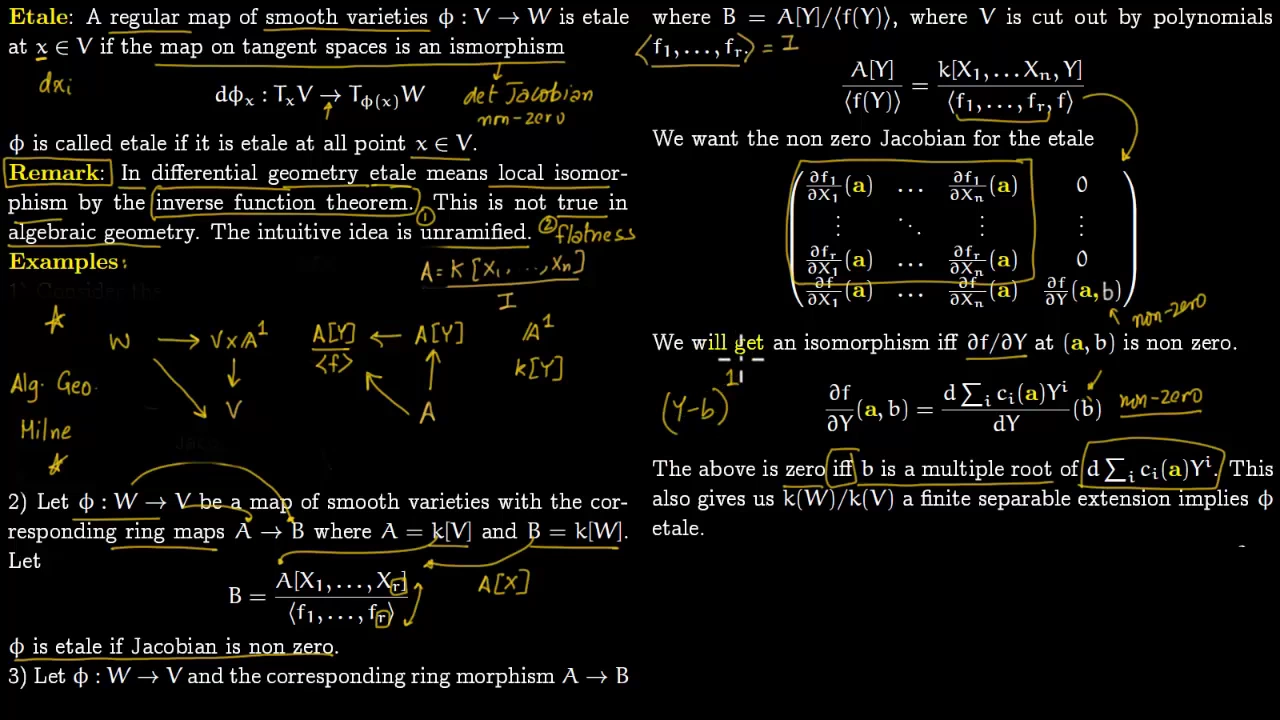 Etale: A regular map of smooth varieties ϕ : V → W is etale
at x ∈ V if the map on tangent spaces is an ismorphism
dxi
dϕₓ : TₓV → T_ϕ(x)W
det Jacobian
non-zero
ϕ is called etale if it is etale at all point x ∈ V.
Remark: In differential geometry etale means local isomor-
phism by the inverse function theorem. ① This is not true in
algebraic geometry. The intuitive idea is unramified. ② flatness
Examples:
A = K[X1, .., Xn]
I
W → V×A¹ A[Y] ← A[Y] A¹
<f> k[Y]
V A
Alg. Geo.
Milne
2) Let ϕ : W → V be a map of smooth varieties with the cor-
responding ring maps A → B where A = k[V] and B = k[W].
Let
B = A[X₁, . . . , Xᵣ]
⟨f₁, . . . , fᵣ⟩
A[X]
ϕ is etale if Jacobian is non zero.
3) Let ϕ : W → V and the corresponding ring morphism A → B
where B = A[Y]/⟨f(Y)⟩, where V is cut out by polynomials
⟨f₁, . . . , fᵣ.⟩ = I
A[Y] / ⟨f(Y)⟩ = k[X₁, . . . Xₙ, Y] / ⟨f₁, . . . , fᵣ, f⟩
We want the non zero Jacobian for the etale
∂f₁/∂X₁ (a) . . . ∂f₁/∂Xₙ (a) 0
⋮ ⋱ ⋮ ⋮
∂fᵣ/∂X₁ (a) . . . ∂fᵣ/∂Xₙ (a) 0
∂f/∂X₁ (a) . . . ∂f/∂Xₙ (a) ∂f/∂Y (a, b)
non-zero
We will get an isomorphism iff ∂f/∂Y at (a, b) is non zero.
1
(Y-b)
∂f/∂Y (a, b) = d ∑ᵢ cᵢ(a)Yⁱ / dY (b) non-zero
The above is zero iff b is a multiple root of d ∑ᵢ cᵢ(a)Yⁱ. This
also gives us k(W)/k(V) a finite separable extension implies ϕ
etale.